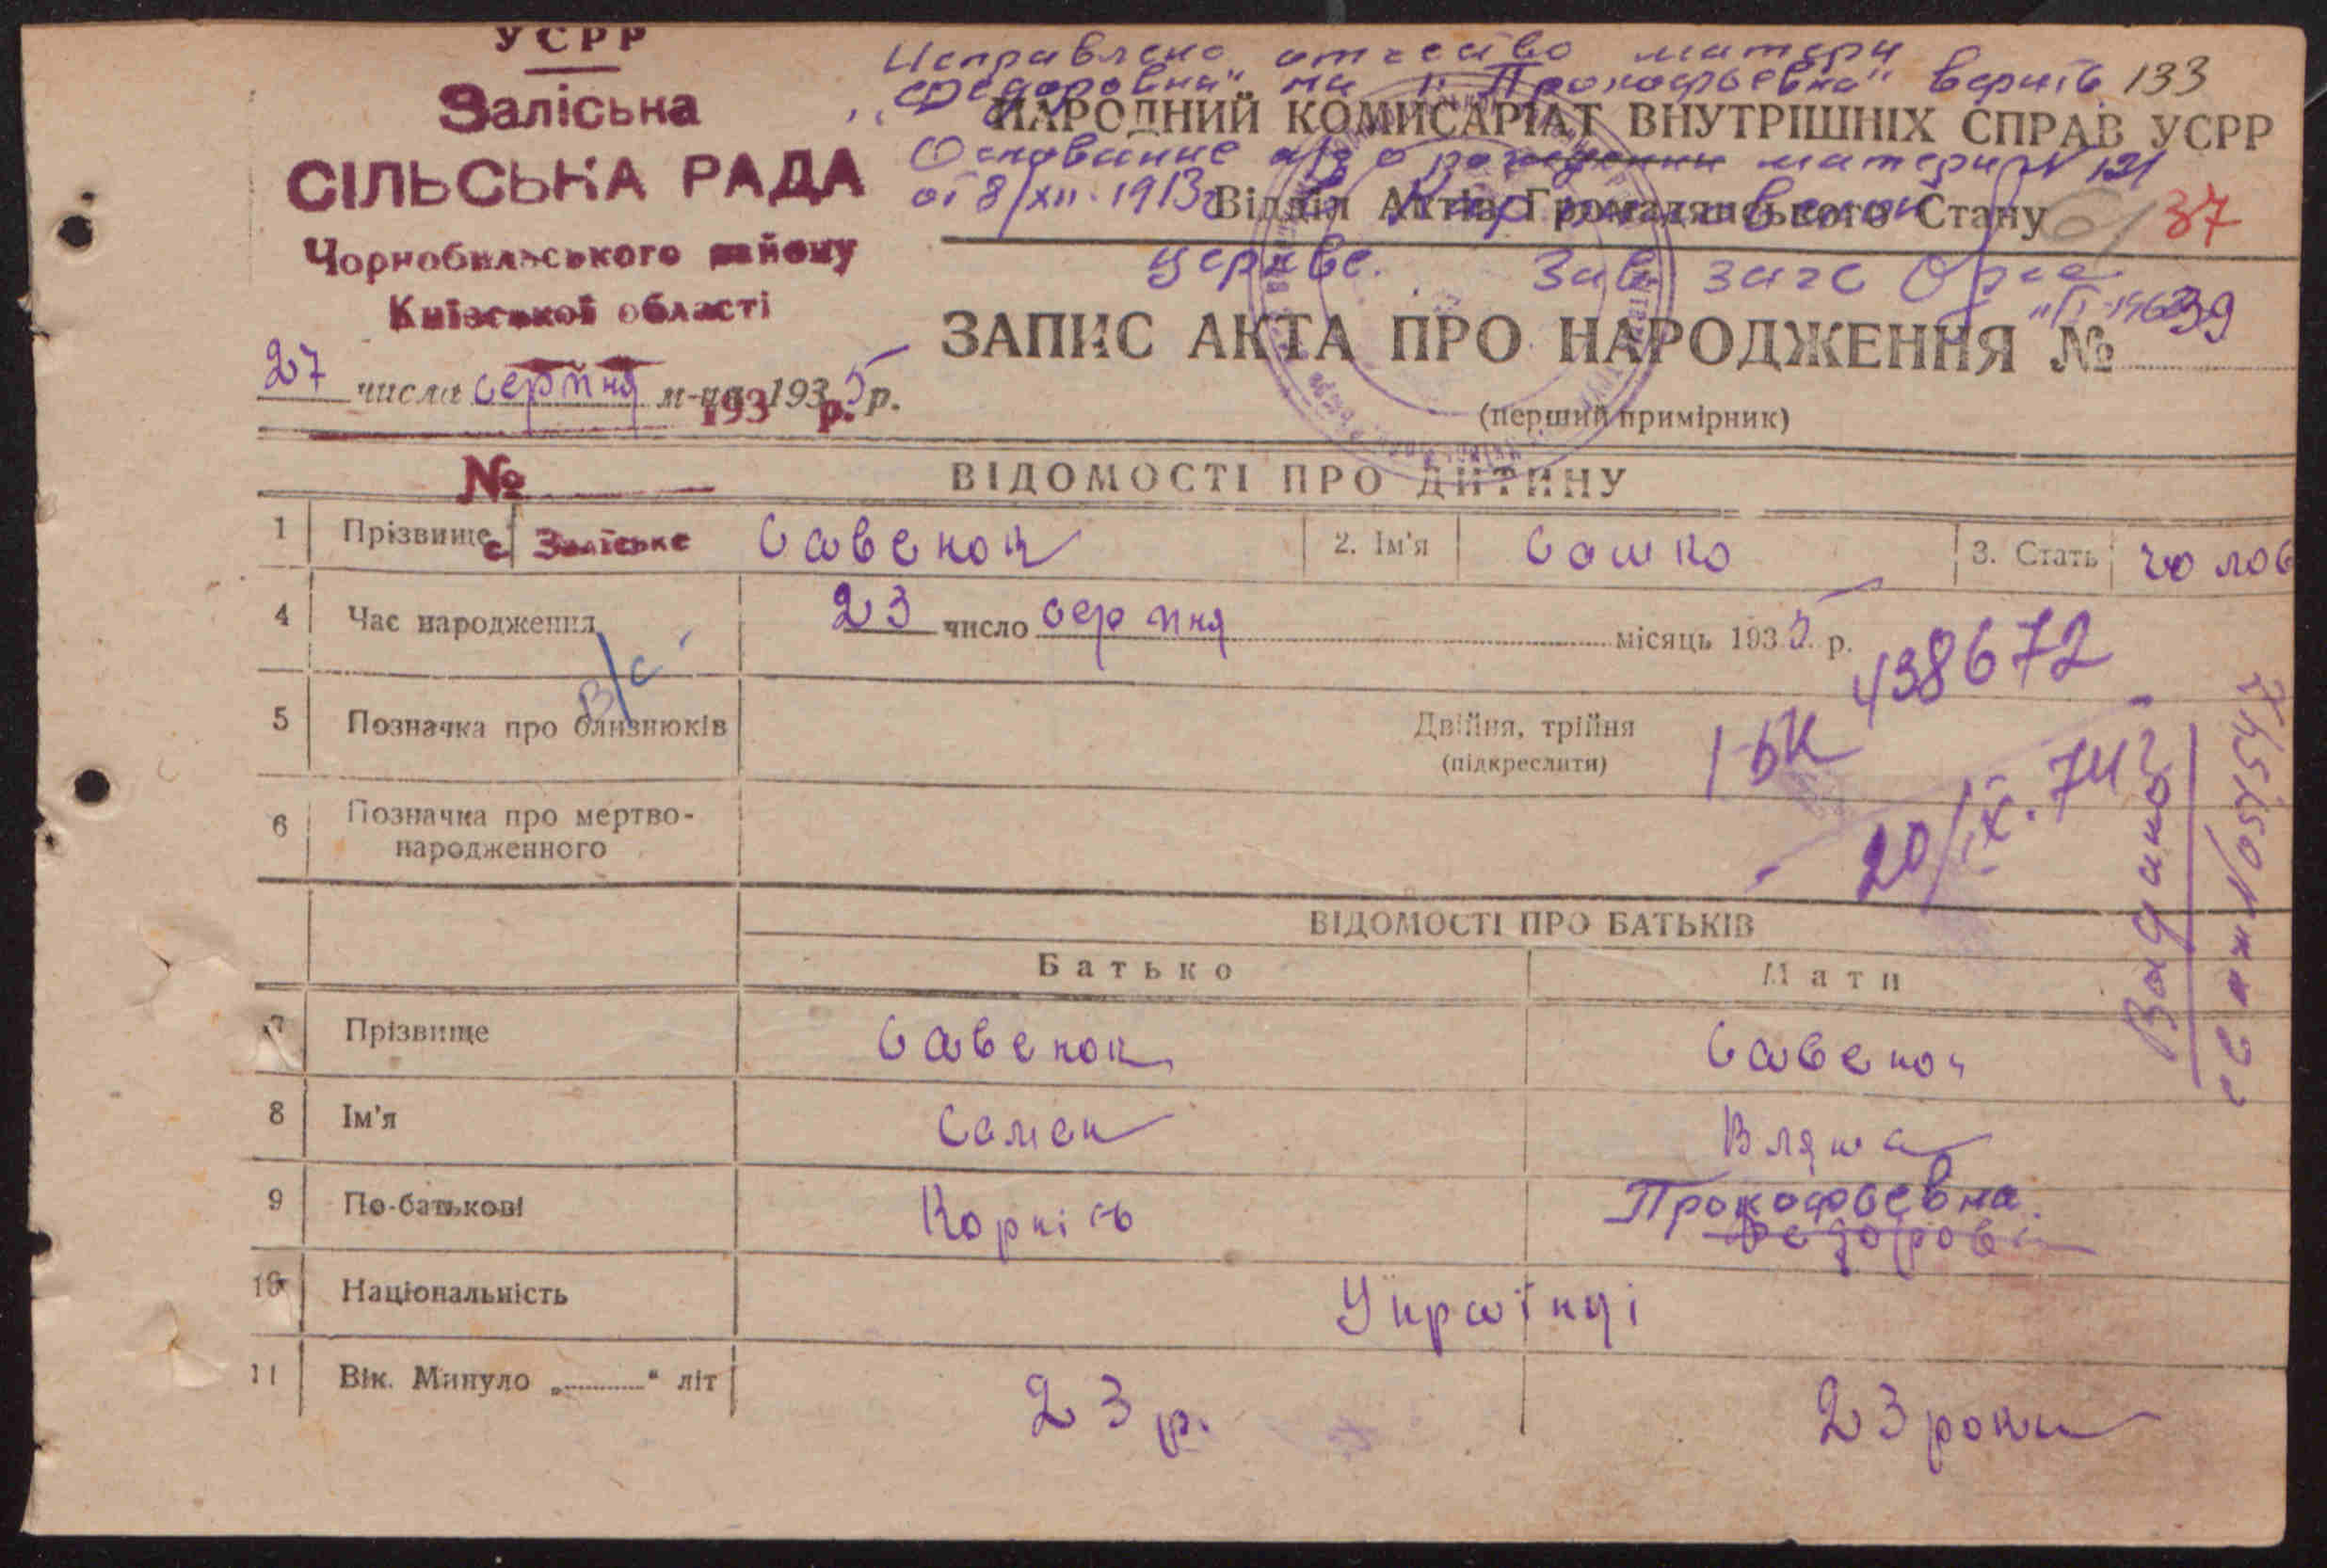 УСРР
Заліська
СІЛЬСЬКА РАДА
Чорнобильського району
Київської області
27 числа серпня м-ця 1935 р.
193 р.
№
Исправлено отчество матери
„Федоровна" на „Прокофьевна" верить 133
НАРОДНИЙ КОМИСАРІАТ ВНУТРІШНІХ СПРАВ УСРР
Основание а/з о рождении матери № 121
от 8/XII-1913г
Відділ Актів Громадянського Стану
37
церкве. Зав. загс
ЗАПИС АКТА ПРО НАРОДЖЕННЯ № 39
(перший примірник)
ВІДОМОСТІ ПРО ДИТИНУ
1 Прізвище с. Заліське Савенок 2. Ім'я Сашко 3. Стать чолов
4 Час народження 23 число серпня місяць 1935 р.
В/с
438672
5 Позначка про близнюків Двійня, трійня
(підкреслити)
1-БК
20/IX.74
6 Позначка про мертво-
народженного
Видано
ВІДОМОСТІ ПРО БАТЬКІВ
Батько Мати
7 Прізвище Савенок Савенок
8 Ім'я Семен Вляна
9 По-батькові Корнів Прокофьевна
Федорові
10 Національність Українці
11 Вік. Минуло „ " літ 23 р. 23 роки